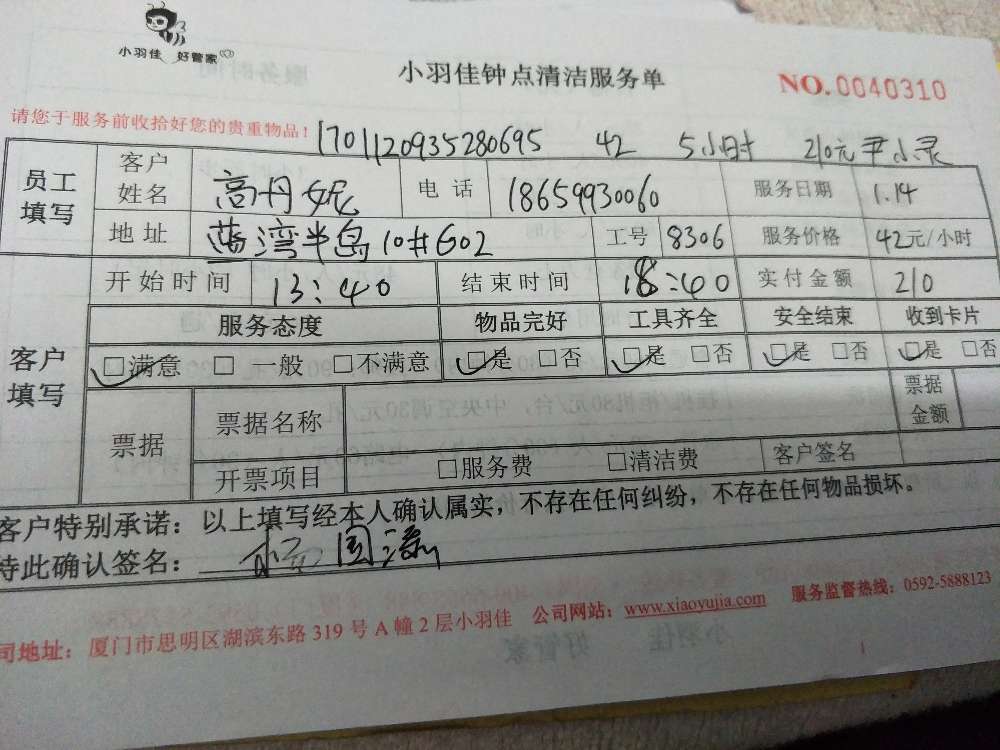 小羽佳 好管家
小羽佳钟点清洁服务单
NO.0040310
请您于服务前收拾好您的贵重物品!
1701120935280695 42 5小时 210元 尹小灵
员工填写 客户姓名 高丹妮 电话 18659930060 服务日期 1.14
地址 蓝湾半岛10#602 工号 8306 服务价格 42元/小时
客户填写 开始时间 13:40 结束时间 18:40 实付金额 210
服务态度 物品完好 工具齐全 安全结束 收到卡片
☑满意 □一般 □不满意 ☑是 □否 ☑是 □否 ☑是 □否 ☑是 □否
票据 票据名称 票据金额
开票项目 □服务费 □清洁费 客户签名
客户特别承诺:以上填写经本人确认属实,不存在任何纠纷,不存在任何物品损坏。
特此确认签名:
司地址:厦门市思明区湖滨东路319号A幢2层小羽佳 公司网站:www.xiaoyujia.com 服务监督热线:0592-5888123